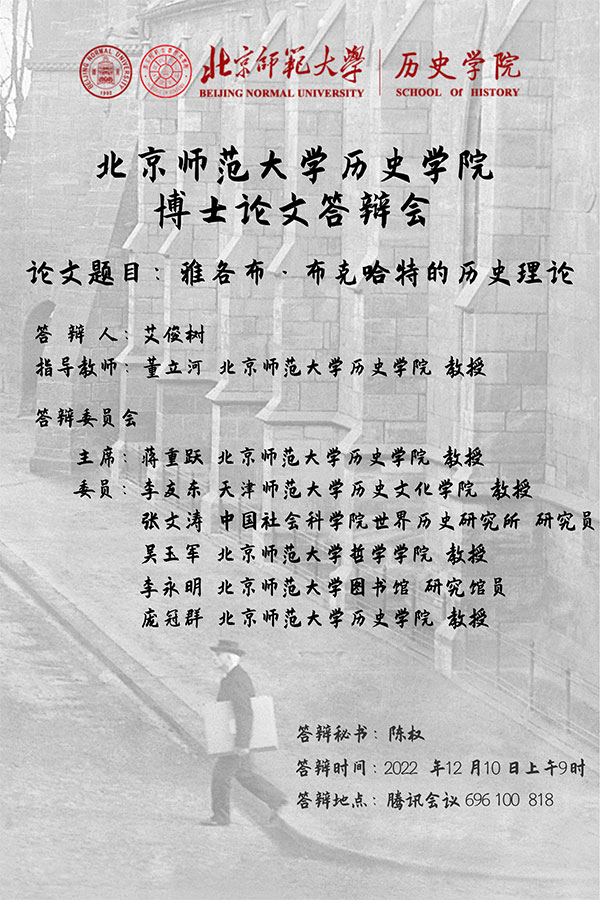 BEIJING NORMAL UNIVERSITY
1902
北京師範大學
BEIJING NORMAL UNIVERSITY
历史学院
SCHOOL OF HISTORY
北京师范大学历史学院
博士论文答辩会
论文题目：雅各布·布克哈特的历史理论
答 辩 人：艾俊树
指导教师：董立河 北京师范大学历史学院 教授
答辩委员会
主席：蒋重跃 北京师范大学历史学院 教授
委员：李友东 天津师范大学历史文化学院 教授
张文涛 中国社会科学院世界历史研究所 研究员
吴玉军 北京师范大学哲学学院 教授
李永明 北京师范大学图书馆 研究馆员
庞冠群 北京师范大学历史学院 教授
答辩秘书：陈权
答辩时间：2022 年12 月10 日上午9时
答辩地点：腾讯会议 696 100 818